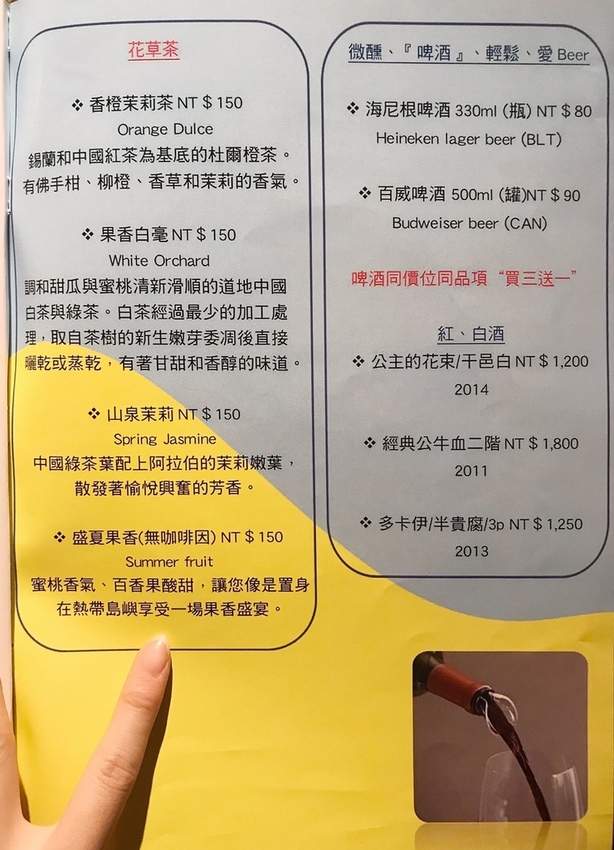 花草茶
❖ 香橙茉莉茶 NT $ 150
Orange Dulce
錫蘭和中國紅茶為基底的杜爾橙茶。
有佛手柑、柳橙、香草和茉莉的香氣。
❖ 果香白毫 NT $ 150
White Orchard
調和甜瓜與蜜桃清新滑順的道地中國
白茶與綠茶。白茶經過最少的加工處
理，取自茶樹的新生嫩芽委凋後直接
曬乾或蒸乾，有著甘甜和香醇的味道。
❖ 山泉茉莉 NT $ 150
Spring Jasmine
中國綠茶葉配上阿拉伯的茉莉嫩葉，
散發著愉悅興奮的芳香。
❖ 盛夏果香(無咖啡因) NT $ 150
Summer fruit
蜜桃香氣、百香果酸甜，讓您像是置身
在熱帶島嶼享受一場果香盛宴。
微醺、『 啤酒 』、輕鬆、愛 Beer
❖ 海尼根啤酒 330ml (瓶) NT $ 80
Heineken lager beer (BLT)
❖ 百威啤酒 500ml (罐)NT $ 90
Budweiser beer (CAN)
啤酒同價位同品項 “買三送一”
紅、白酒
❖ 公主的花束/干邑白 NT $ 1,200
2014
❖ 經典公牛血二階 NT $ 1,800
2011
❖ 多卡伊/半貴腐/3p NT $ 1,250
2013